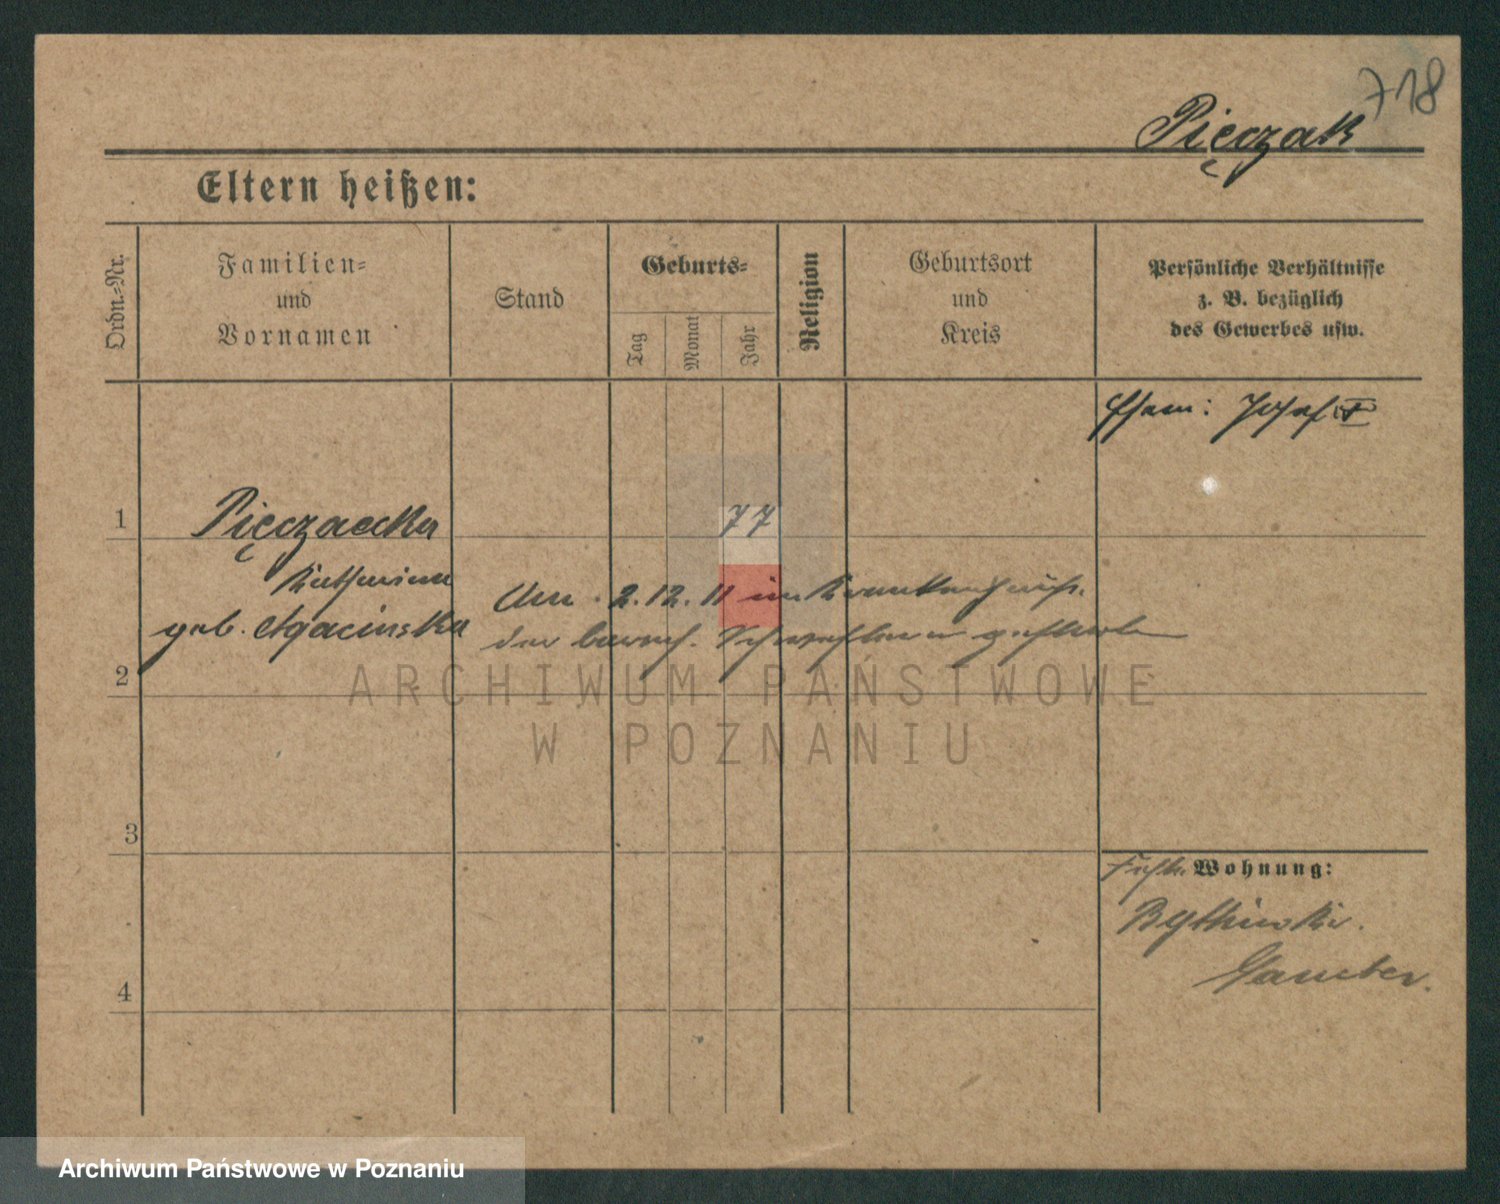 718
Pięczak
Eltern heißen:
Ordn.=Nr.
Familien=
und
Vornamen
Stand
Geburts=
Tag
Monat
Jahr
Religion
Geburtsort
und
Kreis
Persönliche Verhältnisse
z. B. bezüglich
des Gewerbes usw.
Eham: Josef
1
Pięczaecka
77
Katharina
geb. Agacinska
Am 2.12.11 im Krankenhause
der barmh. Schwestern gestorben
2
ARCHIWUM PAŃSTWOWE
W POZNANIU
3
Wohnung:
4
Archiwum Państwowe w Poznaniu